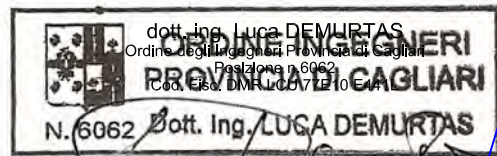 dott. ing. Luca DEMURTAS
Ordine degli Ingegneri Provincia di Cagliari
Posizione n.6062
Cod. Fisc. DMR LCU 77E10 E441L
ORDINE INGEGNERI
PROVINCIA DI CAGLIARI
N. 6062 Dott. Ing. LUCA DEMURTAS